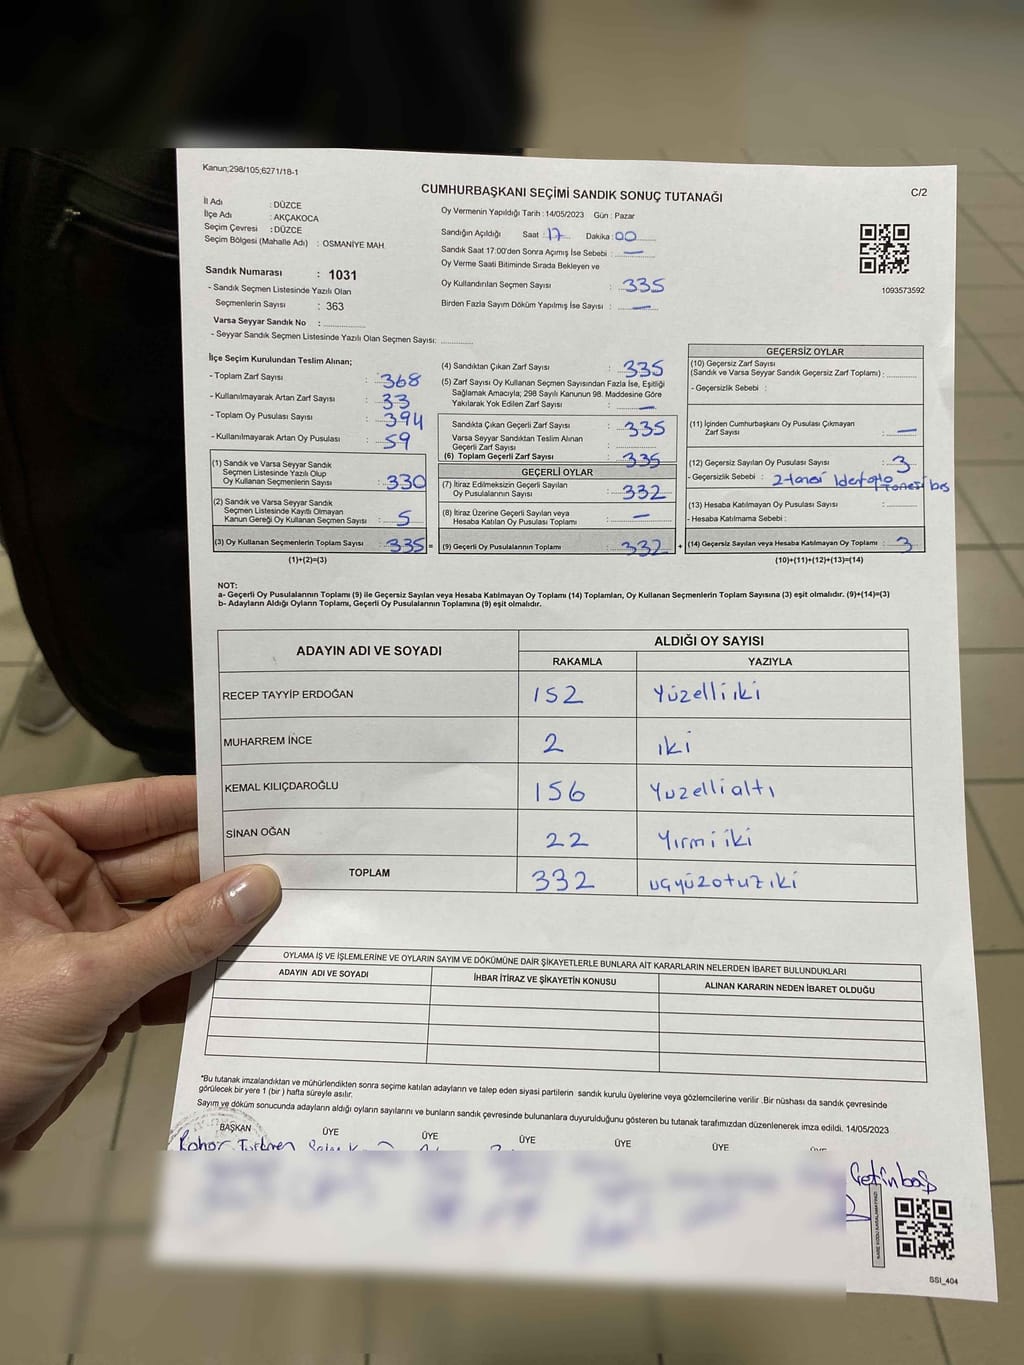 Kanun;298/105;6271/18-1
CUMHURBAŞKANI SEÇİMİ SANDIK SONUÇ TUTANAĞI
C/2
İl Adı : DÜZCE
İlçe Adı : AKÇAKOCA
Seçim Çevresi : DÜZCE
Seçim Bölgesi (Mahalle Adı) : OSMANİYE MAH.
Sandık Numarası : 1031
- Sandık Seçmen Listesinde Yazılı Olan
Seçmenlerin Sayısı : 363
Varsa Seyyar Sandık No :
- Seyyar Sandık Seçmen Listesinde Yazılı Olan Seçmen Sayısı:
Oy Vermenin Yapıldığı Tarih : 14/05/2023 Gün : Pazar
Sandığın Açıldığı Saat : 17 Dakika : 00
Sandık Saat 17:00'den Sonra Açımış İse Sebebi : —
Oy Verme Saati Bitiminde Sırada Bekleyen ve
Oy Kullandırılan Seçmen Sayısı : 335
Birden Fazla Sayım Döküm Yapılmış İse Sayısı : —
1093573592
İlçe Seçim Kurulundan Teslim Alınan;
- Toplam Zarf Sayısı : 368
- Kullanılmayarak Artan Zarf Sayısı : 33
- Toplam Oy Pusulası Sayısı : 394
- Kullanılmayarak Artan Oy Pusulası : 59
(1) Sandık ve Varsa Seyyar Sandık
Seçmen Listesinde Yazılı Olup
Oy Kullanan Seçmenlerin Sayısı : 330
(2) Sandık ve Varsa Seyyar Sandık
Seçmen Listesinde Kayıtlı Olmayan
Kanun Gereği Oy Kullanan Seçmen Sayısı : 5
(3) Oy Kullanan Seçmenlerin Toplam Sayısı : 335 =
(1)+(2)=(3)
(4) Sandıktan Çıkan Zarf Sayısı : 335
(5) Zarf Sayısı Oy Kullanan Seçmen Sayısından Fazla İse, Eşitliği
Sağlamak Amacıyla; 298 Sayılı Kanunun 98. Maddesine Göre
Yakılarak Yok Edilen Zarf Sayısı : —
Sandıkta Çıkan Geçerli Zarf Sayısı : 335
Varsa Seyyar Sandıktan Teslim Alınan
Geçerli Zarf Sayısı :
(6) Toplam Geçerli Zarf Sayısı : 335
GEÇERLİ OYLAR
(7) İtiraz Edilmeksizin Geçerli Sayılan
Oy Pusulalarının Sayısı : 332
(8) İtiraz Üzerine Geçerli Sayılan veya
Hesaba Katılan Oy Pusulası Toplamı : —
(9) Geçerli Oy Pusulalarının Toplamı : 332 +
GEÇERSİZ OYLAR
(10) Geçersiz Zarf Sayısı
(Sandık ve Varsa Seyyar Sandık Geçersiz Zarf Toplamı) :
- Geçersizlik Sebebi :
(11) İçinden Cumhurbaşkanı Oy Pusulası Çıkmayan
Zarf Sayısı : —
(12) Geçersiz Sayılan Oy Pusulası Sayısı : 3
- Geçersizlik Sebebi : 2 tanesi
(13) Hesaba Katılmayan Oy Pusulası Sayısı :
- Hesaba Katılmama Sebebi :
(14) Geçersiz Sayılan veya Hesaba Katılmayan Oy Toplamı : 3
(10)+(11)+(12)+(13)=(14)
NOT:
a- Geçerli Oy Pusulalarının Toplamı (9) ile Geçersiz Sayılan veya Hesaba Katılmayan Oy Toplamı (14) Toplamları, Oy Kullanan Seçmenlerin Toplam Sayısına (3) eşit olmalıdır. (9)+(14)=(3)
b- Adayların Aldığı Oyların Toplamı, Geçerli Oy Pusulalarının Toplamına (9) eşit olmalıdır.
ADAYIN ADI VE SOYADI ALDIĞI OY SAYISI
RAKAMLA YAZIYLA
RECEP TAYYİP ERDOĞAN 152 Yüzelliiki
MUHARREM İNCE 2 iki
KEMAL KILIÇDAROĞLU 156 Yuzellialtı
SİNAN OĞAN 22 Yırmiiki
TOPLAM 332 uçyüzotuziki
OYLAMA İŞ VE İŞLEMLERİNE VE OYLARIN SAYIM VE DÖKÜMÜNE DAİR ŞİKAYETLERLE BUNLARA AİT KARARLARIN NELERDEN İBARET BULUNDUKLARI
ADAYIN ADI VE SOYADI İHBAR İTİRAZ VE ŞİKAYETİN KONUSU ALINAN KARARIN NEDEN İBARET OLDUĞU
*Bu tutanak imzalandıktan ve mühürlendikten sonra seçime katılan adayların ve talep eden siyasi partilerin sandık kurulu üyelerine veya gözlemcilerine verilir .Bir nüshası da sandık çevresinde
görülecek bir yere 1 (bir ) hafta süreyle asılır.
Sayım ve döküm sonucunda adayların aldığı oyların sayılarını ve bunların sandık çevresinde bulunanlara duyurulduğunu gösteren bu tutanak tarafımızdan düzenlenerek imza edildi. 14/05/2023
BAŞKAN ÜYE ÜYE ÜYE ÜYE ÜYE
Çetinbaş
SSI_404